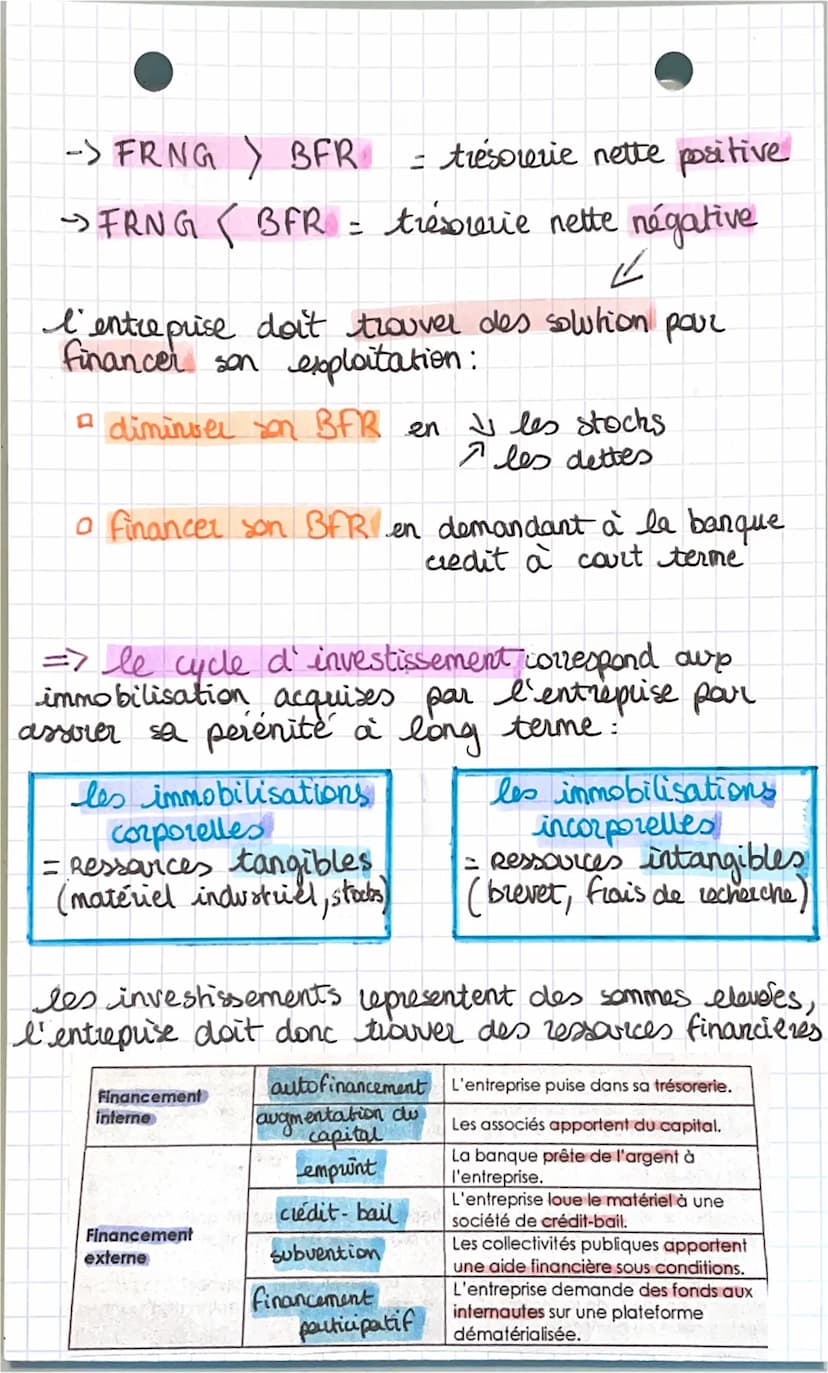 -> FRNG > BFR = trésorerie nette positive
-> FRNG < BFR = trésorerie nette négative
l'entreprise doit trouver des solution pour
financer son exploitation :
diminuer son BFR en ↘ les stocks
↗ les dettes
financer son BFR en demandant à la banque
credit à court terme
=> le cycle d'investissement correspond aux
immobilisation acquises par l'entreprise pour
assurer sa perénité à long terme :
les immobilisations
corporelles
= Ressources tangibles
(matériel industriel, stocks)
les immobilisations
incorporelles
= Ressources intangibles
(brevet, frais de recherche)
les investissements representent des sommes elevées,
l'entreprise doit donc trouver des ressources financières
Financement
interne
autofinancement
L'entreprise puise dans sa trésorerie.
augmentation du
capital
Les associés apportent du capital.
Financement
externe
emprunt
La banque prête de l'argent à
l'entreprise.
crédit-bail
L'entreprise loue le matériel à une
société de crédit-bail.
subvention
Les collectivités publiques apportent
une aide financière sous conditions.
financement
participatif
L'entreprise demande des fonds aux
internautes sur une plateforme
dématérialisée.